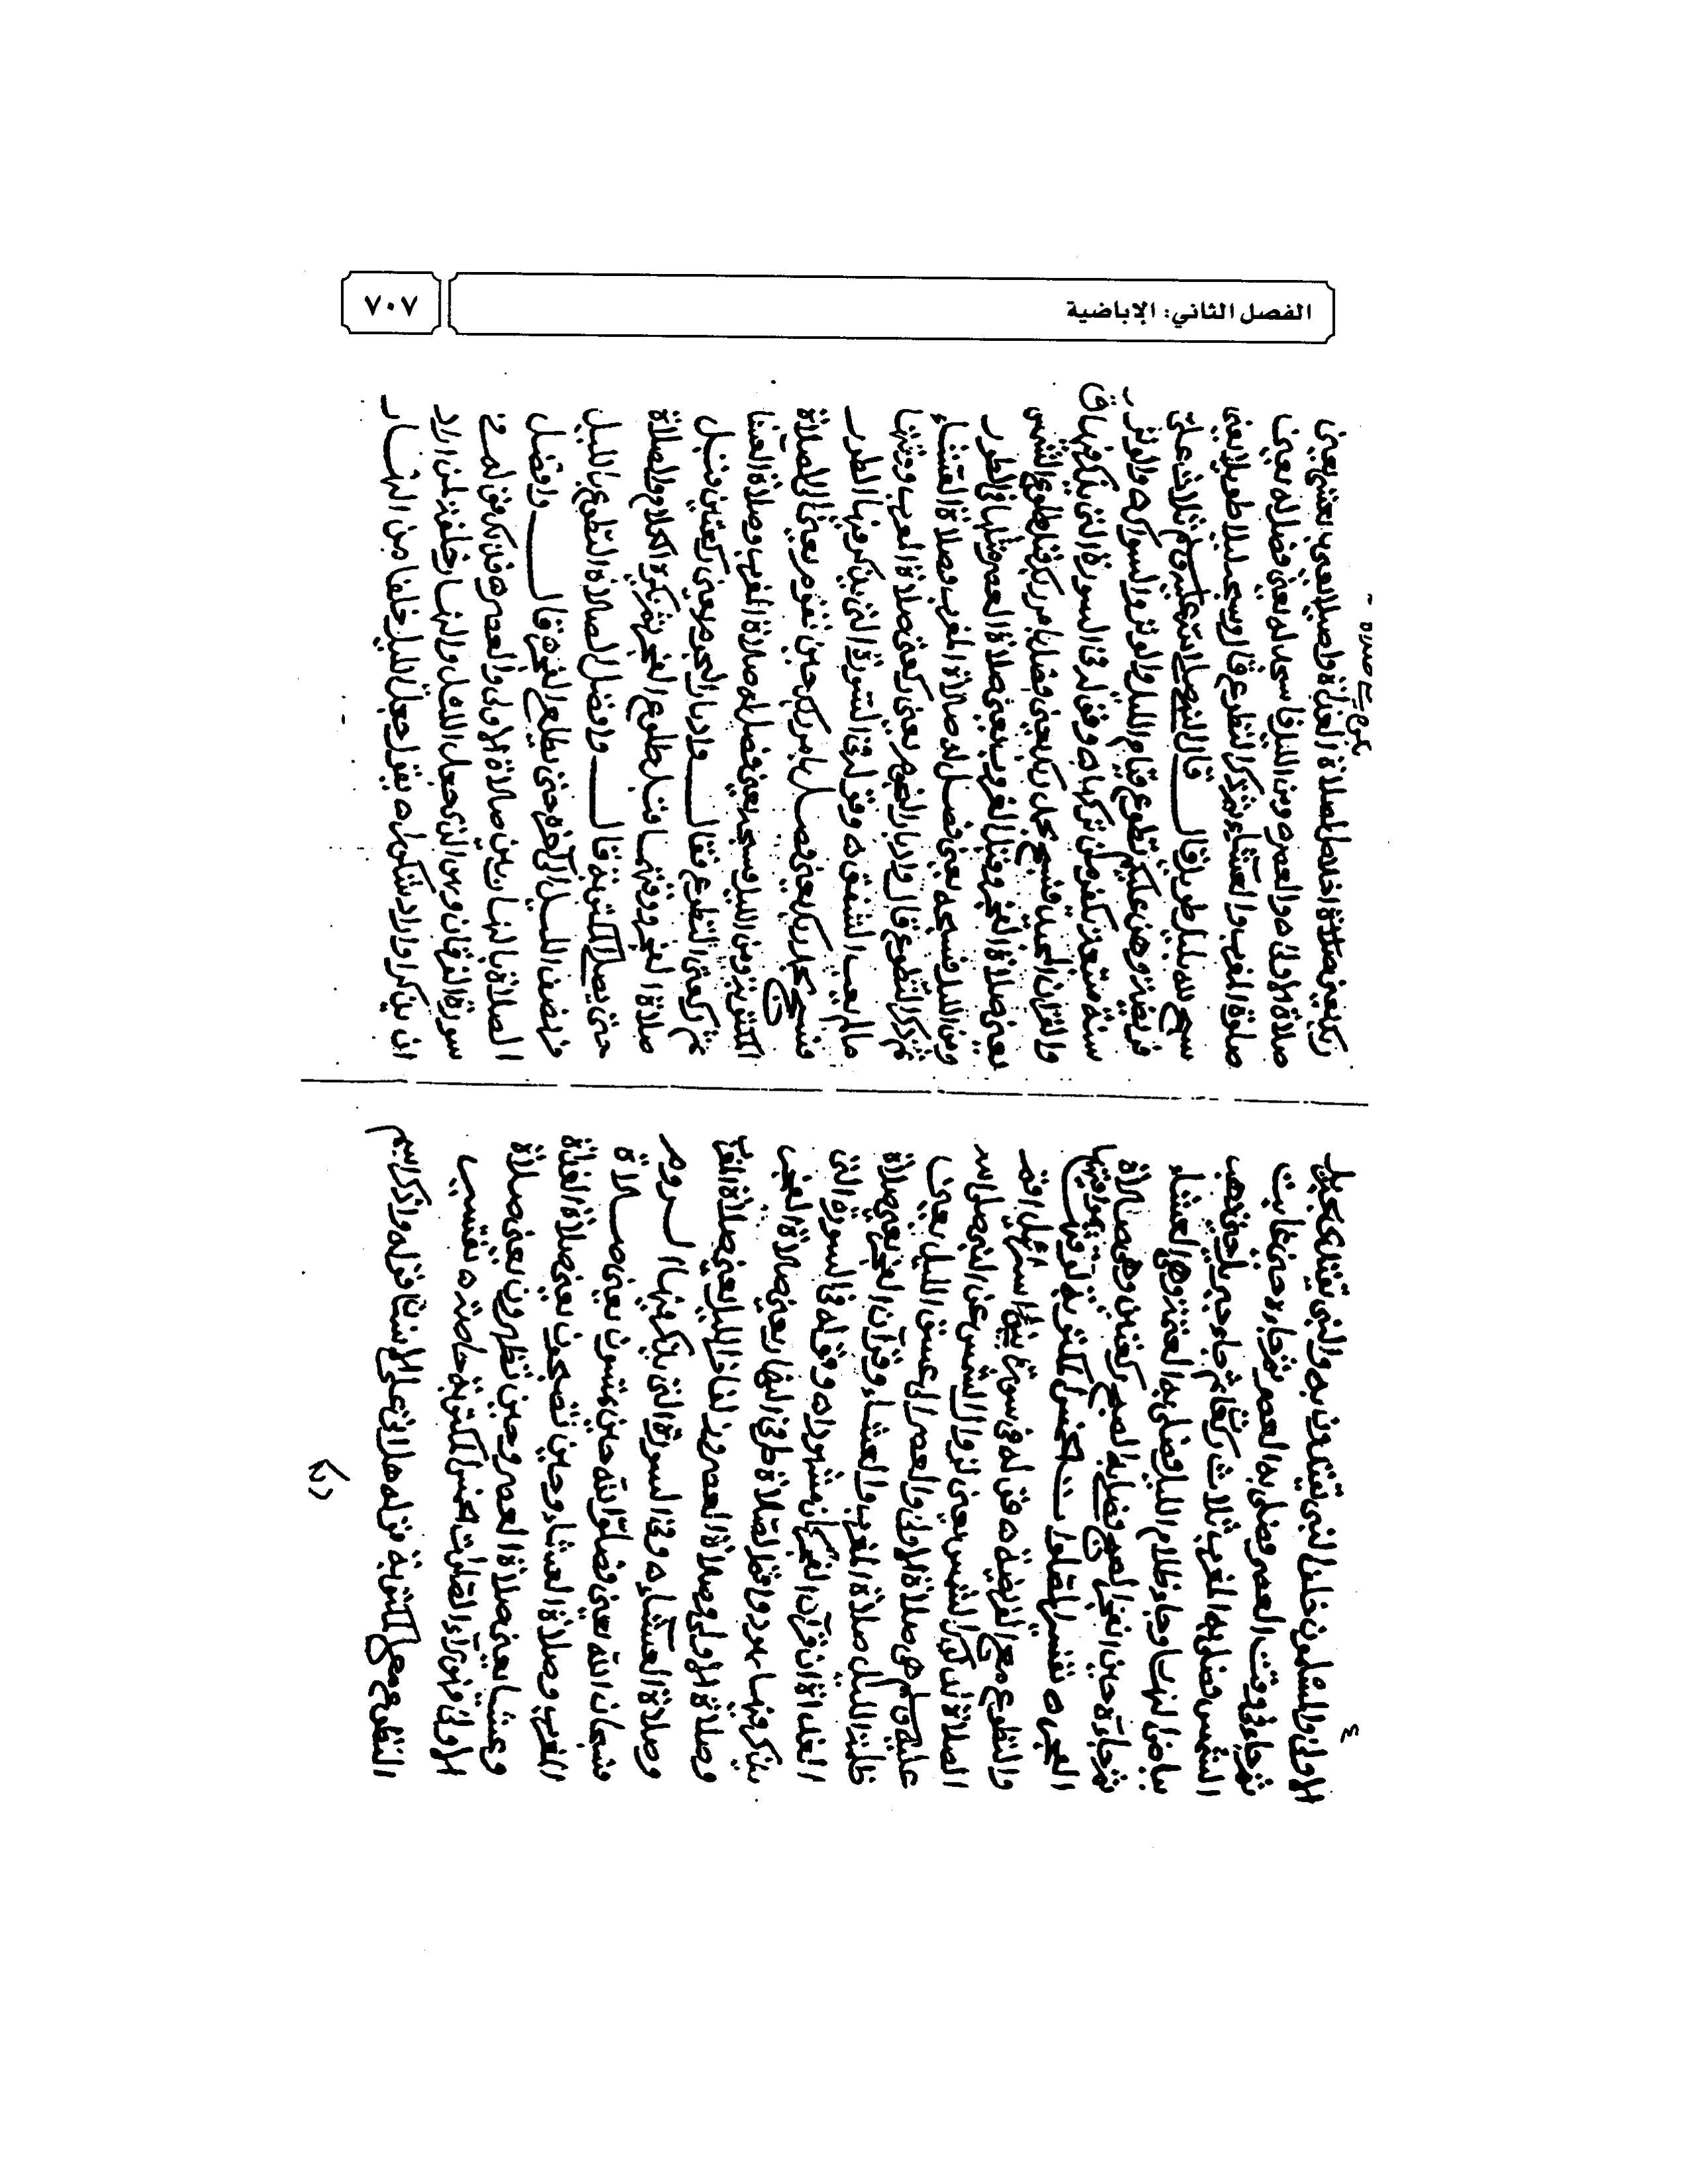 الفصل الثاني: الإباضية
٧٠٧
الاولى والمسلمون خلف النبي يقتدون به والنبي يقتدي بجبريل
ثم جاءه في وقت العصر وصلى به العصر ثم جاءه حين غابت
الشمس فصلى به المغرب ثلاث ركعات ثم جاءه جبريل حين ذهب
بياض النهار وجاء ظلام الليل فصلى به العتمة وهي العشاء
ثم جاءه حين انفجر الصبح فصلى به الصبح ركعتين وهي صلاة
الفجر ه تفسير الصلوات الخمس المكتوبة
والتطوع مع الفريضة ه قوله في سورة بني اسرائيل اقم
الصلاة لدلوك الشمس يعني لزوال الشمس عن النبي صلى الله
عليه وسلم هي صلاة الاولى والعصر الى غسق الليل يعني
ظلمة الليل صلاة المغرب والعشاء وقرآن الفجر يعني صلاة
الغداة ان قرآن الفجر كان مشهودا ه وقوله في السورة التي
يذكر فيها هود واقم الصلاة طرفي النهار يعني صلاة الفجر
وصلاة الاولى وصلاة العصر وزلفا من الليل يعني صلاة
وصلاة العشاء ه وفي السورة التي يذكر فيها الروم
فسبحان الله يعني فصلوا لله حين تمسون يعني صلاة
المغرب وصلاة العشاء وحين تصبحون يعني صلاة الغداة
وعشيا يعني صلاة العصر وحين تظهرون يعني صلاة
الاولى الصلوات الخمس المكتوبة خاصة ه تفسير
التطوع مع المكتوبة قوله هل اتى على الانسان قوله واذكر اسم
ربك يعني صلاة اخلص الصلاة الغداة واصيلا يعني بعشي يعني
صلاة الاولى ه والعصر ومن الليل فاسجد له يعني فصل له يعني
صلوة المغرب والعشاء ثم ذكر التطوع فقال وسبحه ليلا طويلا يعني
سبح لله بليل طويل قال النبي صلى الله عليه وسلم ثلاث علي
فريضة وهن عليكم تطوع قيام الليل والوتر والسواك ه والوتر
سنة من تركها ه وقوله في السورة التي يذكر فيها ق
والقرآن المجيد فسبح بحمد ربك يعني فصل بامر ربك قبل طلوع الشمس
يعني صلاة الفجر وقبل الغروب يعني صلاة العصر في الطور
ومن الليل فسبحه يعني فصل له صلاة المغرب وصلاة العشاء
ثم ذكر التطوع قال وادبار السجود يعني ركعتي صلاة المغرب وقتها
ما لم يغب الشفق ه وقوله في السورة التي يذكر فيها الطور
فسبح بحمد ربك يعني فصل بامر ربك حين تقوم يعني الى الصلاة
المكتوبة ومن الليل فسبحه يعني فصل له صلاة المغرب وصلاة العشاء
ثم ذكر التطوع فقال وادبار النجوم يعني ركعتين قبل
صلاة الفجر وقتها قبل طلوع الفجر ثم يكره الكلام والصلاة
حتى يصلي المكتوبة قال وافضل الصلاة التطوع بالليل
من نصف الليل الى آخره حتى يطلع الفجر ه قال وافضل
الصلاة بالنهار بين صلاة الاولى والعصر ه فذلك قوله في
سورة الفرقان وهو الذي جعل الليل والنهار خلفة لمن اراد
ان يذكر او اراد شكورا ه يقول جعل الليل خلفا من النهار